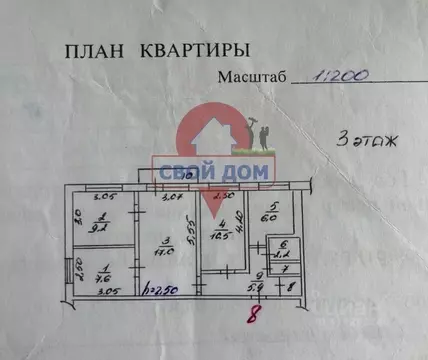 ПЛАН КВАРТИРЫ
Масштаб 1:200
3 этаж
СВОЙ ДОМ
10
3.05
3.07
2.50
2
9.2
3.0
3
17.0
5.55
4
10.5
4.20
5
6.0
6
2.2
7
8
9
5.9
1
7.6
2.50
3.05
h=2.50
8